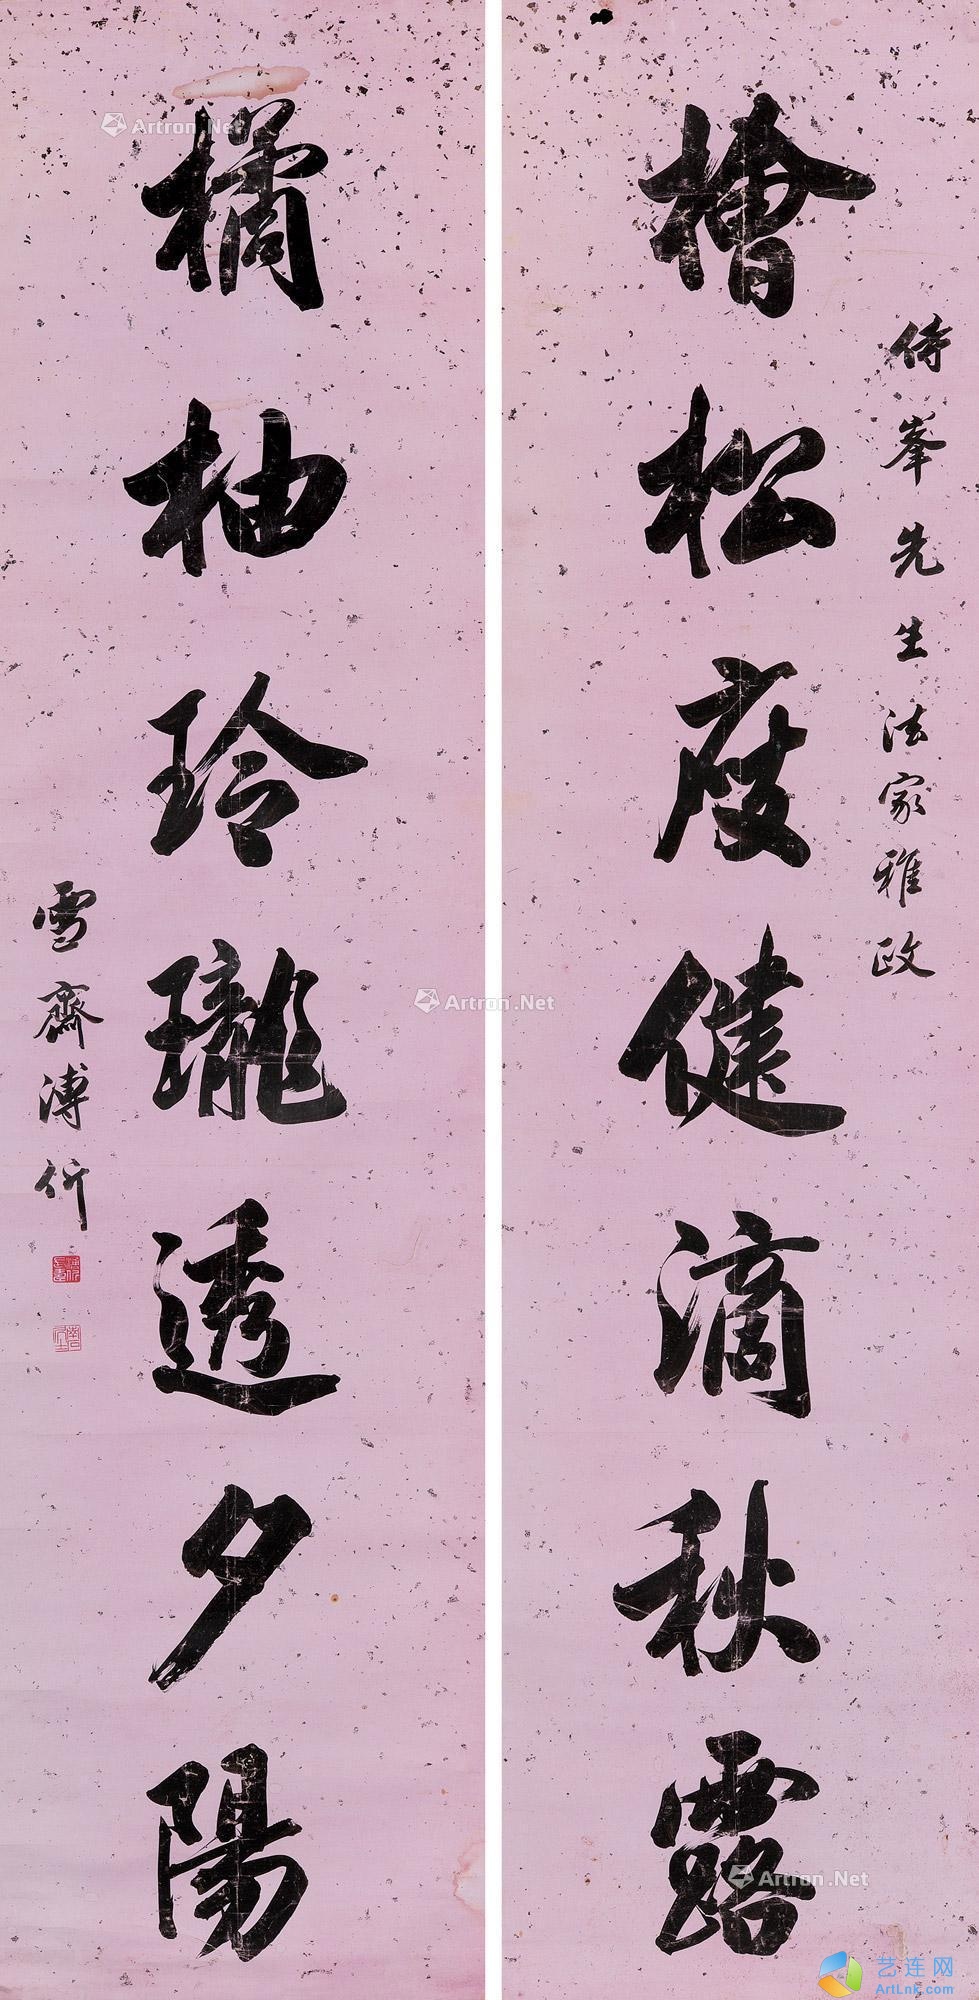 檜松度健滴秋露
侍峯先生法家雅政
橘柚玲瓏透夕陽
雪齋溥伒
Artron.Net
Artron.Net
Artron.Net
艺连网
ArtLnk.com